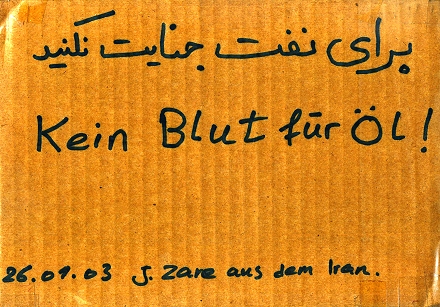 برای نفت جنایت نکنید
Kein Blut für Öl!
26.01.03 J. Zare aus dem Iran.